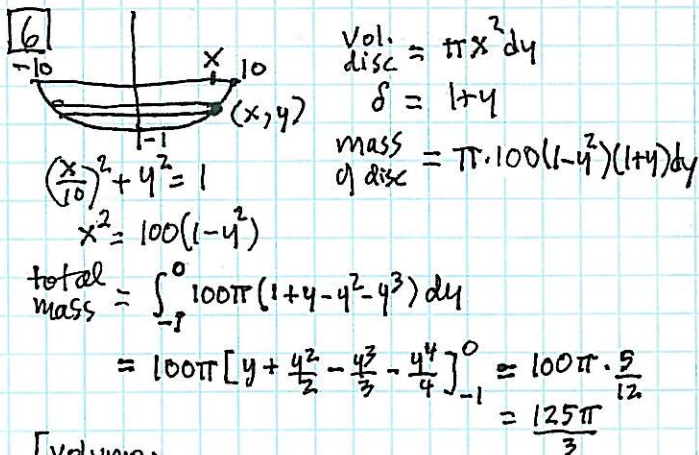 6
Vol. disc = πx²dy
-10 x 10
(x,y)
δ = 1+y
-1
mass of disc = π·100(1-y²)(1+y)dy
(x/10)² + y² = 1
x² = 100(1-y²)
total mass = ∫₋₁⁰ 100π(1+y-y²-y³)dy
= 100π[y + y²/2 - y³/3 - y⁴/4]₋₁⁰ = 100π·5/12
= 125π/3
[Volume: